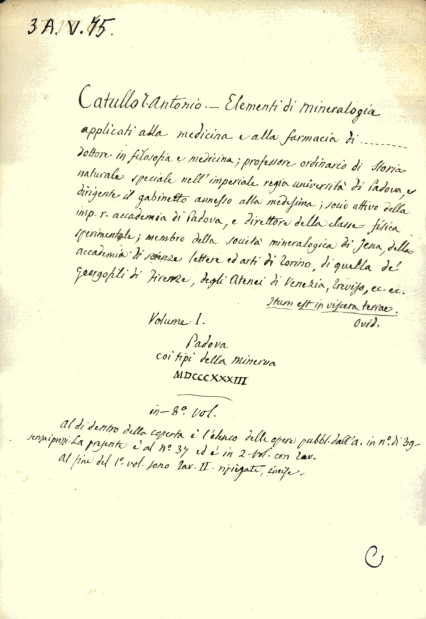 3 A. V. 75.
Catullo T. Antonio. — Elementi di mineralogia
applicati alla medicina e alla farmacia di ..........
dottore in filosofia e medicina; professore ordinario di storia
naturale speciale nell'imperiale regia università di Padova, e
dirigente il gabinetto annesso alla medesima; socio attivo della
imp. r. accademia di Padova, e direttore della classe fisica
sperimentale; membro della società mineralogica di Jena, della
accademia di scienze lettere ed arti di Torino, di quella de'
Georgofili di Firenze, degli Atenei di Venezia, Treviso, ec. ec.
Itum est in viscera terrae.
Ovid.
Volume I.
Padova
coi tipi della Minerva
MDCCCXXXIII
in-8º. vol.
Al di dentro della coperta è l'elenco delle opere pubbl. dall'a. in nº. di 39-
senza prezzi. La presente è al nº 37 ed è in 2. vol. con tav.
Al fine del 1º. vol. sono Tav. II. ripiegate, incise.
C